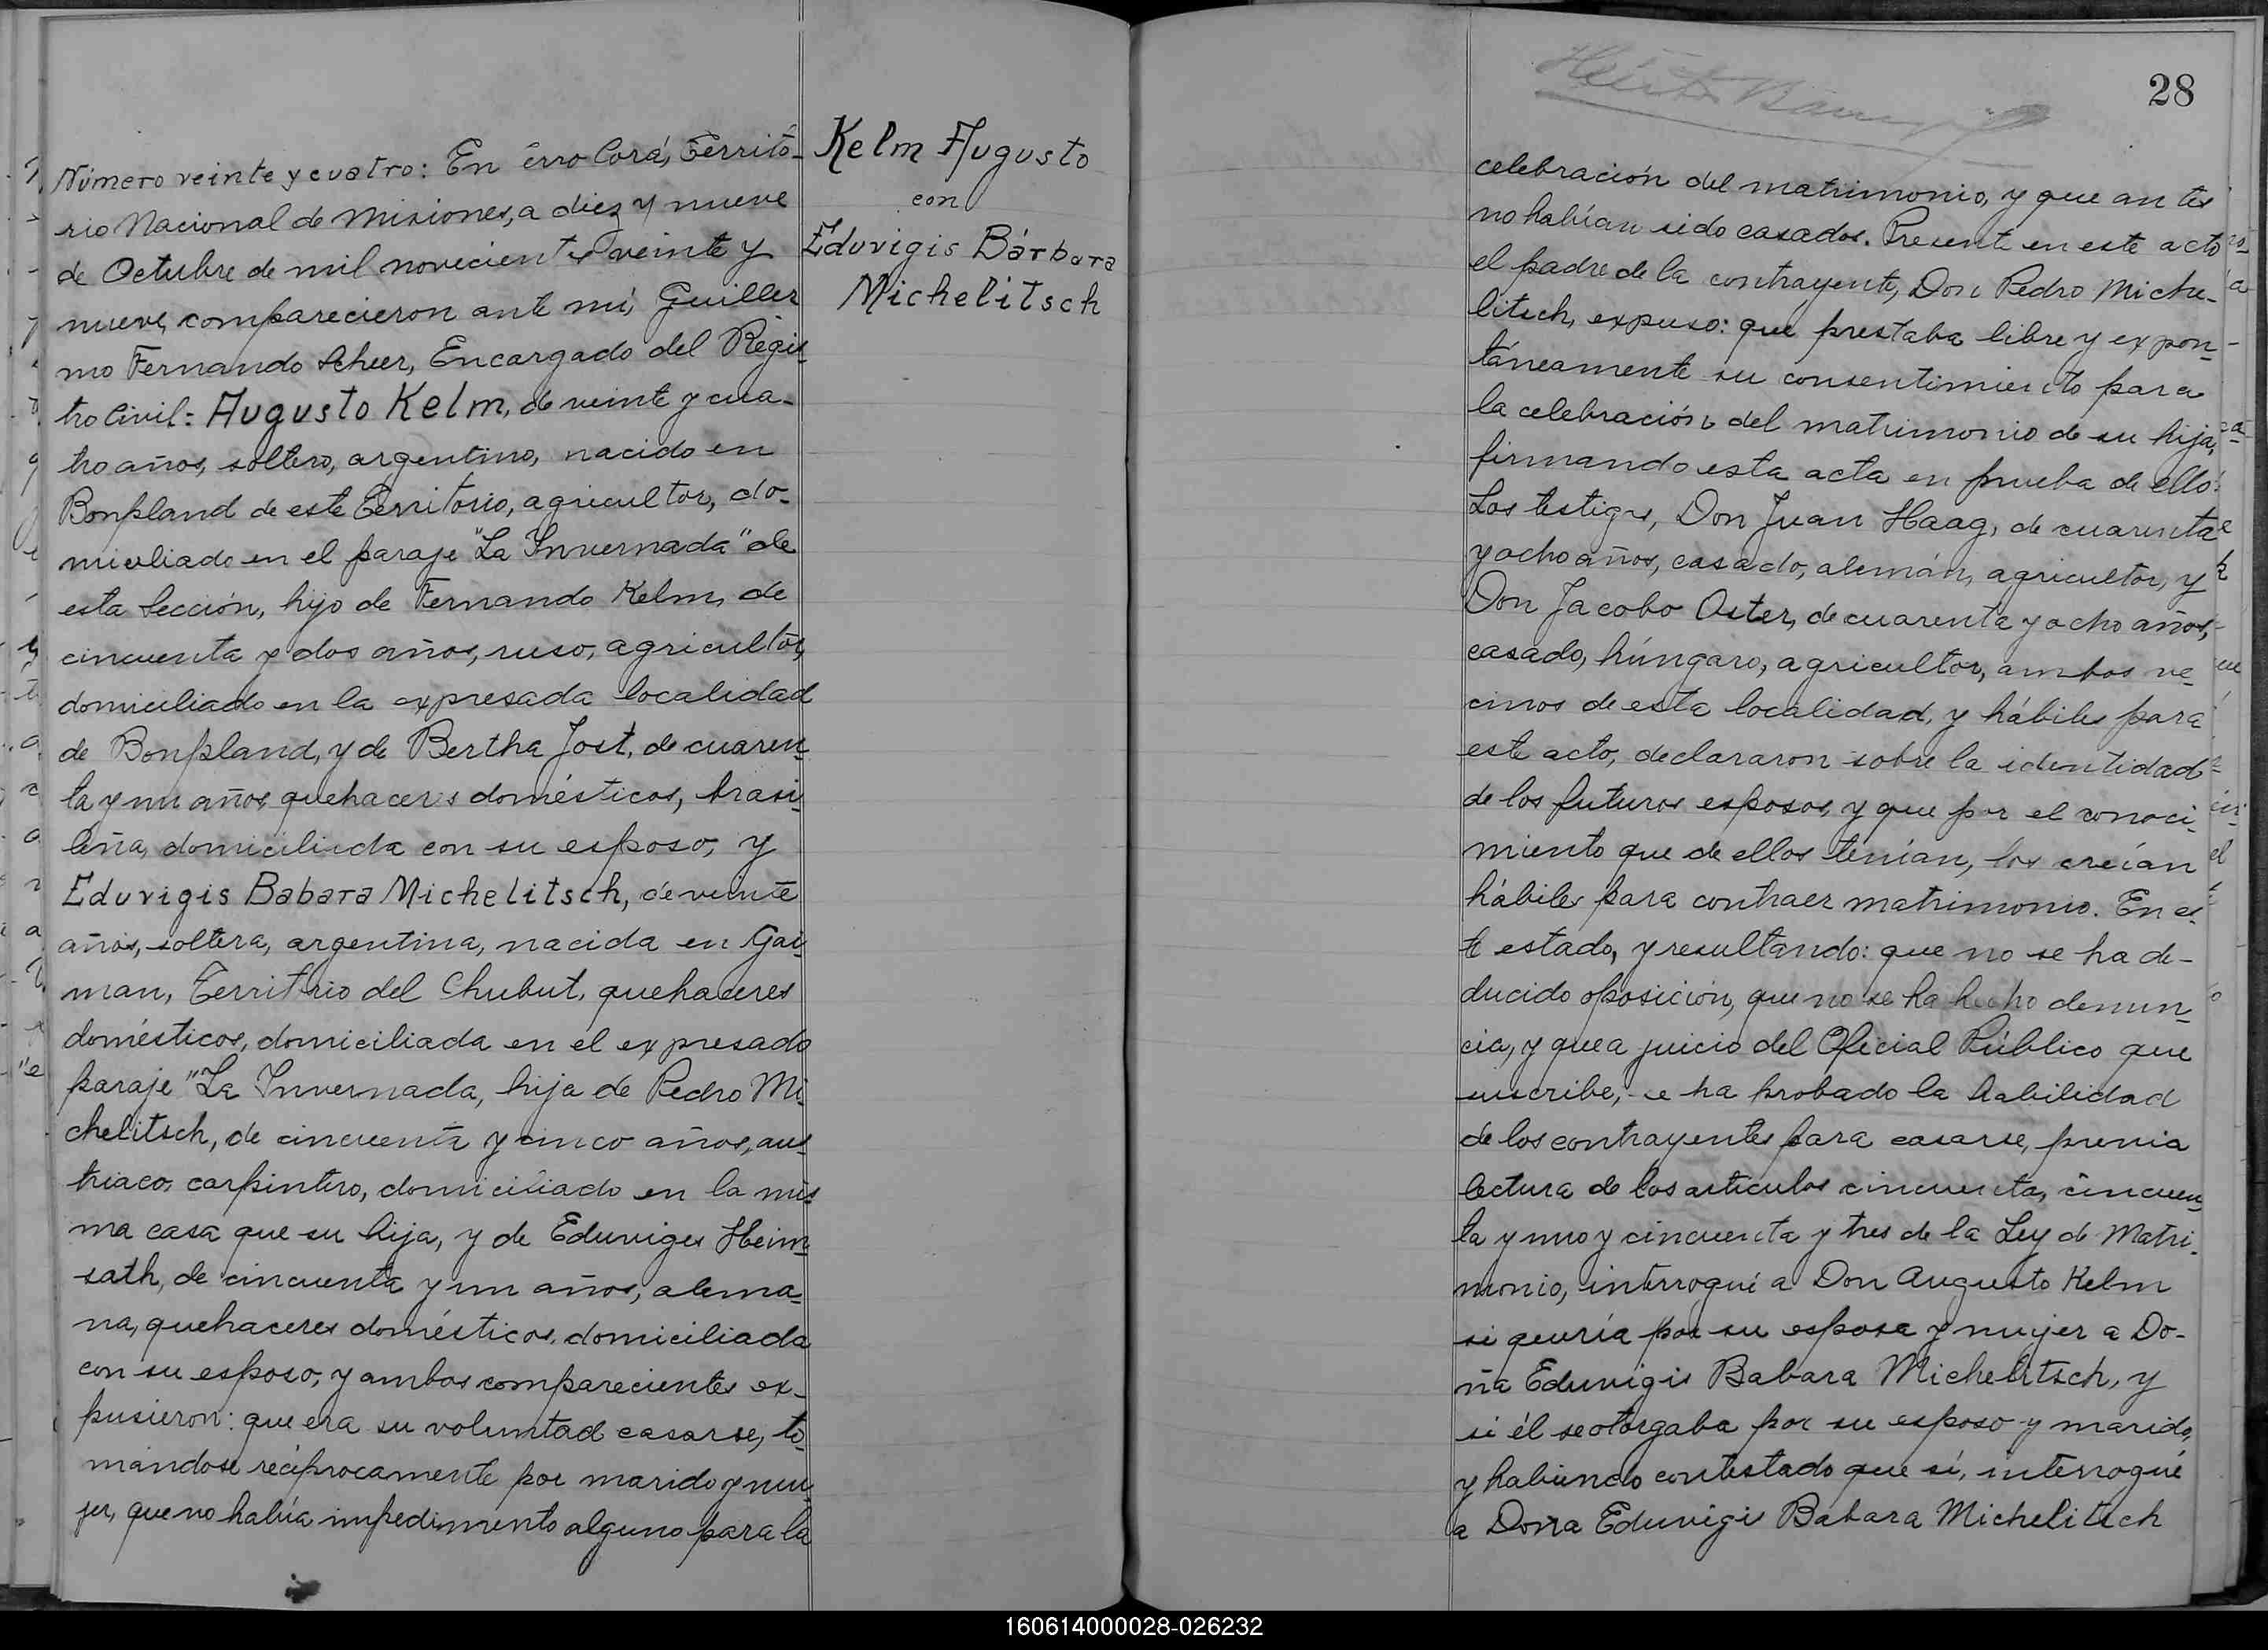 Número veinte y cuatro: En Cerro Corá, Territo-
rio Nacional de Misiones, a diez y nueve
de Octubre de mil novecientos veinte y
nueve, comparecieron ante mí, Guiller
mo Fernando Scheer, Encargado del Regis-
tro Civil: Augusto Kelm, de veinte y cua-
tro años, soltero, argentino, nacido en
Bonpland de este Territorio, agricultor, do-
miciliado en el paraje "La Invernada" de
esta Sección, hijo de Fernando Kelm, de
cincuenta y dos años, ruso, agricultor,
domiciliado en la expresada localidad
de Bonpland, y de Bertha Jost, de cuaren-
ta y un años, quehaceres domésticos, brasi-
leña, domiciliada con su esposo; y
Eduvigis Babara Michelitsch, de veinte
años, soltera, argentina, nacida en Gai-
man, Territorio del Chubut, quehaceres
domésticos, domiciliada en el expresado
paraje "La Invernada, hija de Pedro Mi-
chelitsch, de cincuenta y cinco años, aus-
triaco, carpintero, domiciliado en la mis-
ma casa que su hija, y de Eduviges Heim-
sath, de cincuenta y un años, alema-
na, quehaceres domésticos, domiciliada
con su esposo; y ambos comparecientes ex-
pusieron: que era su voluntad casarse, to-
mándose recíprocamente por marido y mu-
jer, que no había impedimento alguno para la
Kelm Augusto
con
Eduvigis Bárbara
Michelitsch
28
celebración del matrimonio, y que antes
no habían sido casados. Presente en este acto
el padre de la contrayente, Don Pedro Miche-
litsch, expuso: que prestaba libre y expon-
táneamente su consentimiento para
la celebración del matrimonio de su hija,
firmando esta acta en prueba de ello.
Los testigos, Don Juan Haag, de cuarenta
y ocho años, casado, alemán, agricultor, y
Don Jacobo Oster, de cuarenta y ocho años,
casado, húngaro, agricultor, ambos ve-
cinos de esta localidad, y hábiles para
este acto, declararon sobre la identidad
de los futuros esposos, y que por el conoci-
miento que de ellos tenían, los creían
hábiles para contraer matrimonio. En es-
te estado, y resultando: que no se ha de-
ducido oposición, que no se ha hecho denun-
cia, y que a juicio del Oficial Público que
suscribe, se ha probado la habilidad
de los contrayentes para casarse, previa
lectura de los artículos cincuenta, cincuen-
ta y uno y cincuenta y tres de la Ley de Matri-
monio, interrogué a Don Augusto Kelm
si quería por su esposa y mujer a Do-
ña Eduvigis Babara Michelitsch, y
si él se otorgaba por su esposo y marido,
y habiendo contestado que sí, interrogué
a Doña Eduvigis Babara Michelitsch
160614000028-026232